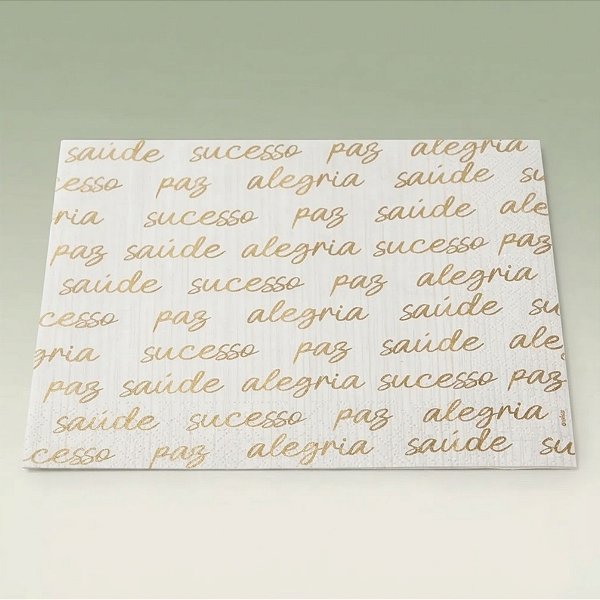 saúde sucesso paz alegria
esso paz alegria saúde su
ria sucesso paz saúde ale
paz saúde alegria sucesso paz
saúde sucesso paz alegria
cesso paz alegria saúde su
gria sucesso paz saúde ale
paz saúde alegria sucesso paz
saúde sucesso paz alegria
cesso paz alegria saúde su